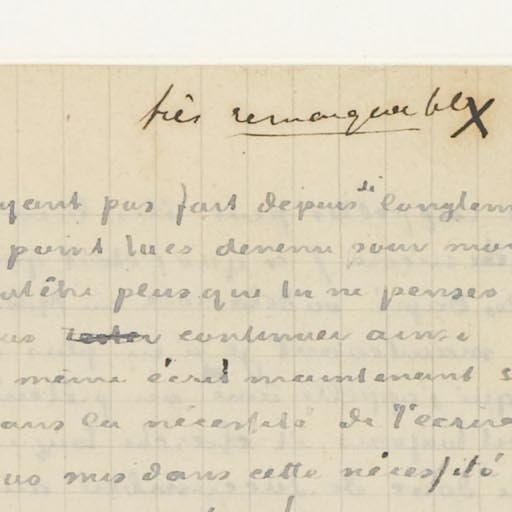 très remarquable X
yant pas fait depuis si longtem
point tu es devenu pour moi
ut être plus que tu ne penses
us rester continuer ainsi
même écrit maintenant s
ans la nécessité de t'écrire
us mis dans cette nécessité